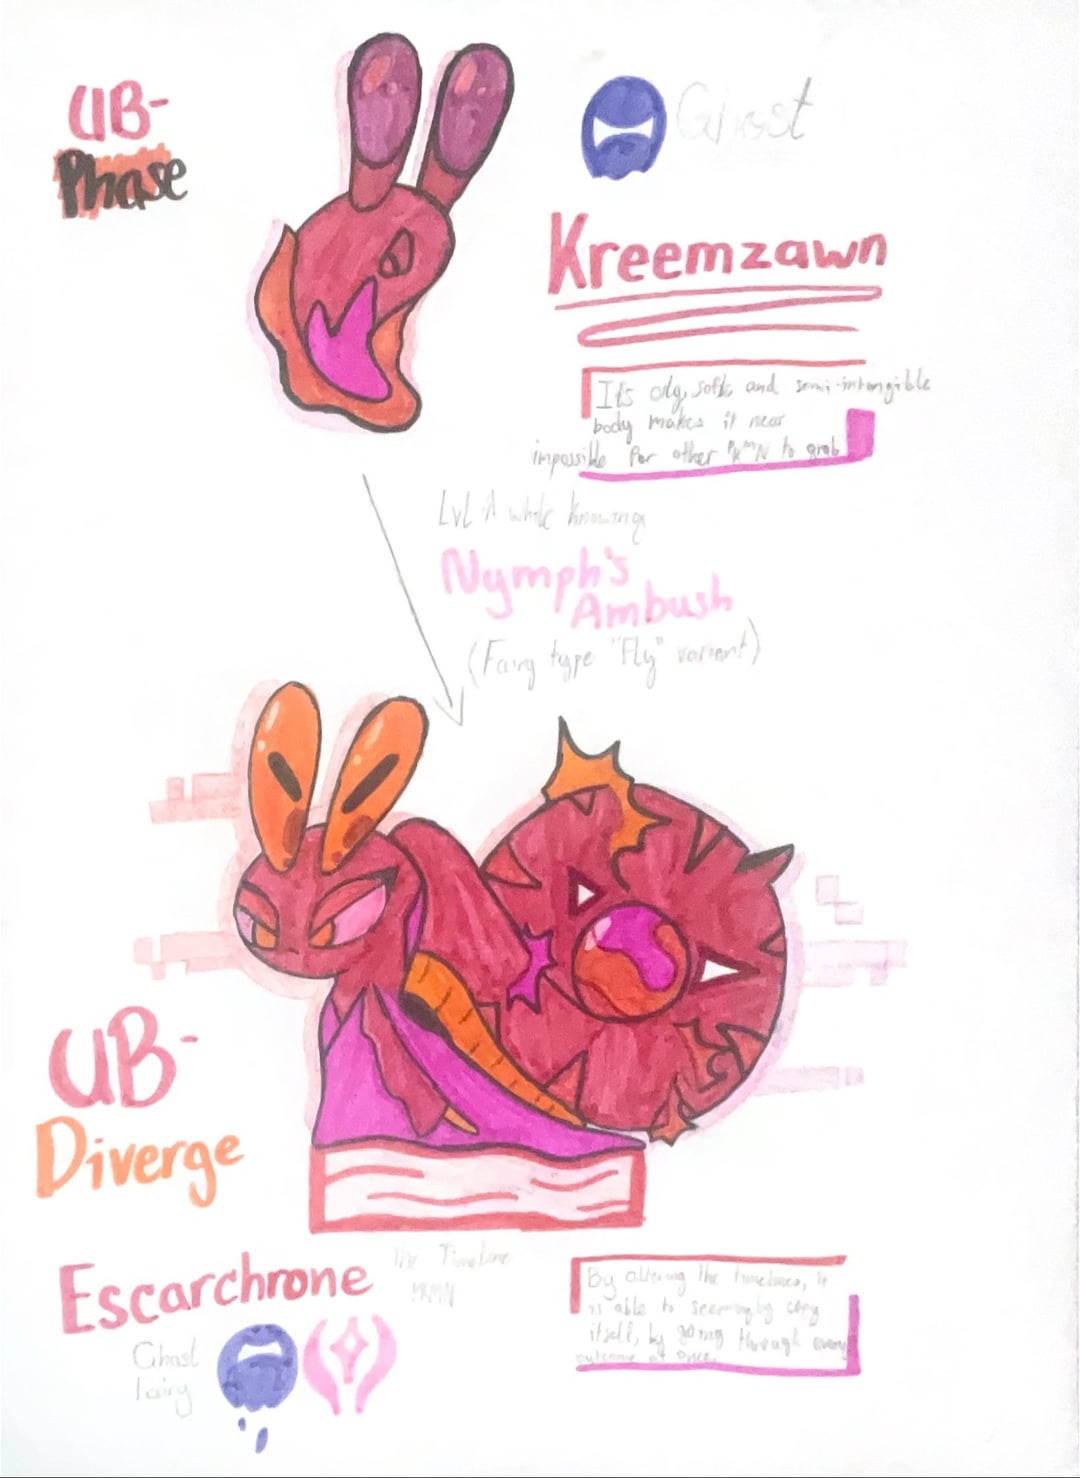 UB-
Phase
Ghost
Kreemzawn
It's oly, soft, and semi-intangible
body makes it near
impossible for other PKMN to grab
Lvl ↑ while knowing
Nymph's
Ambush
(Fairy type "Fly" varient)
UB-
Diverge
Escarchrone
The Timeline
PKMN
Ghost
Fairy
By altering the timelines, it
is able to seemingly copy
itself, by going through every
outcome at once.